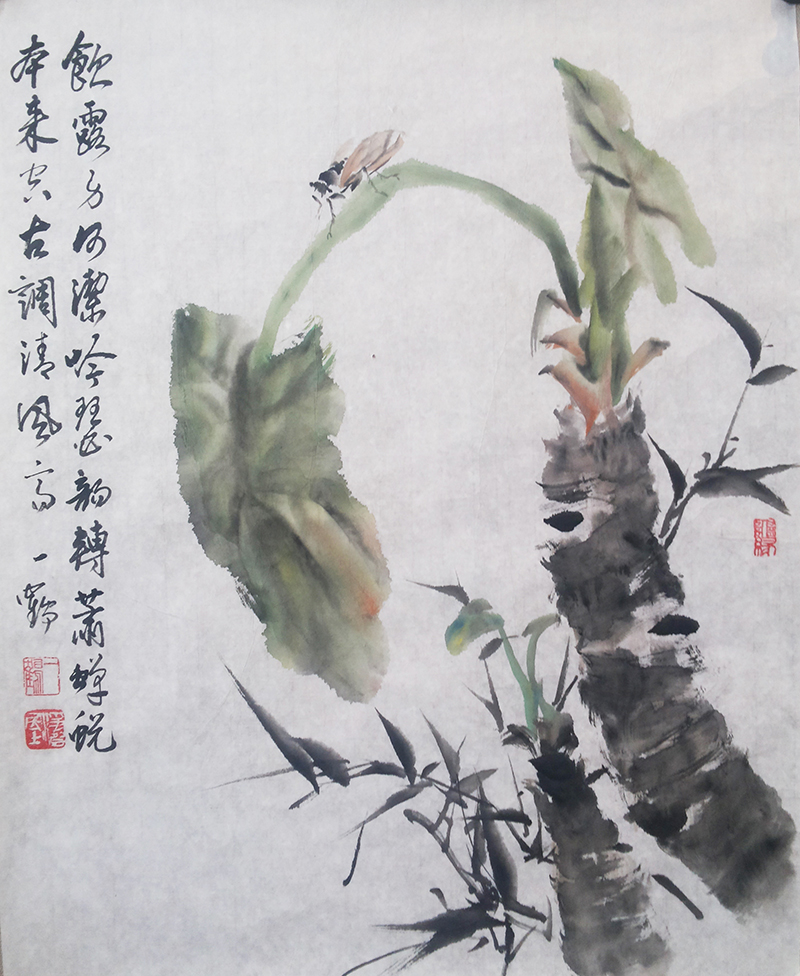 飲露身何潔吟瑟韻轉蕭蟬蛻
本来空古調清風高 一鶴